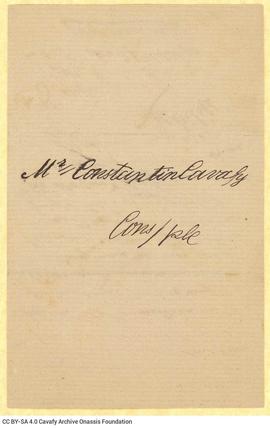 Mr Constantin Cavafy
Cons/ple
CC BY-SA 4.0 Cavafy Archive Onassis Foundation